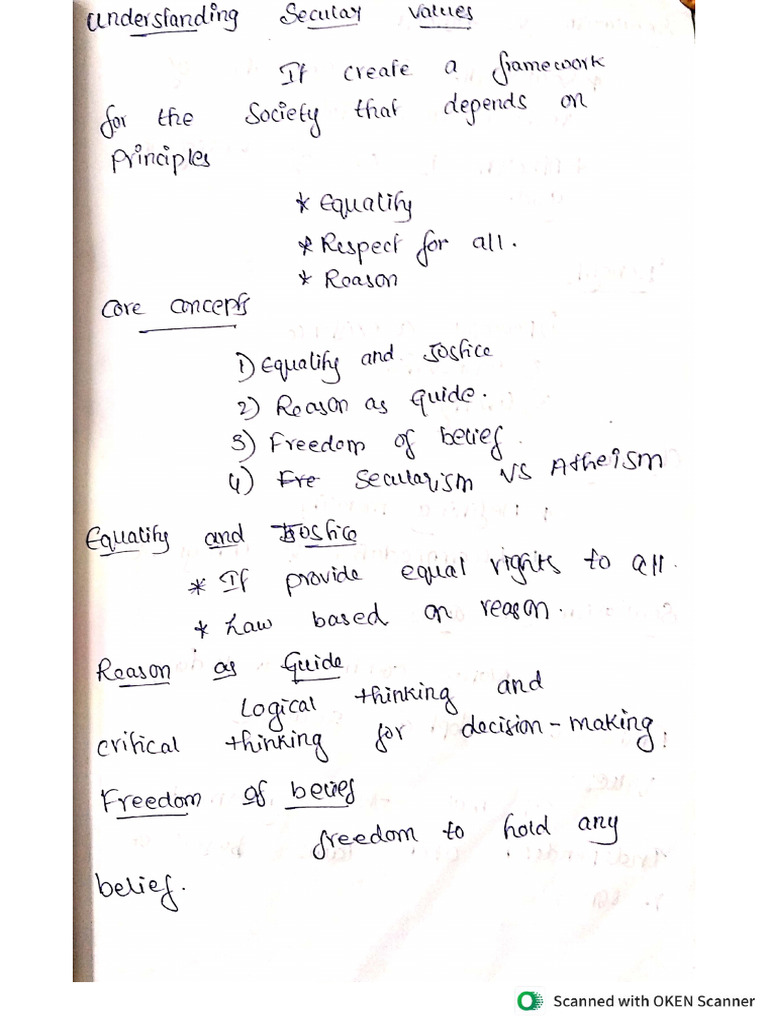 Understanding Secular Values
It create a framework
for the Society that depends on
Principles
* Equality
* Respect for all.
* Reason
Core concepts
1) Equality and Jostice
2) Reason as Guide.
3) Freedom of belief.
4) Fre Secularism VS Atheism
Equality and Jostice
* It provide equal rights to all.
* Law based on reason.
Reason as Guide
Logical thinking and
critical thinking for decision-making.
Freedom of belief
freedom to hold any
belief.
Scanned with OKEN Scanner